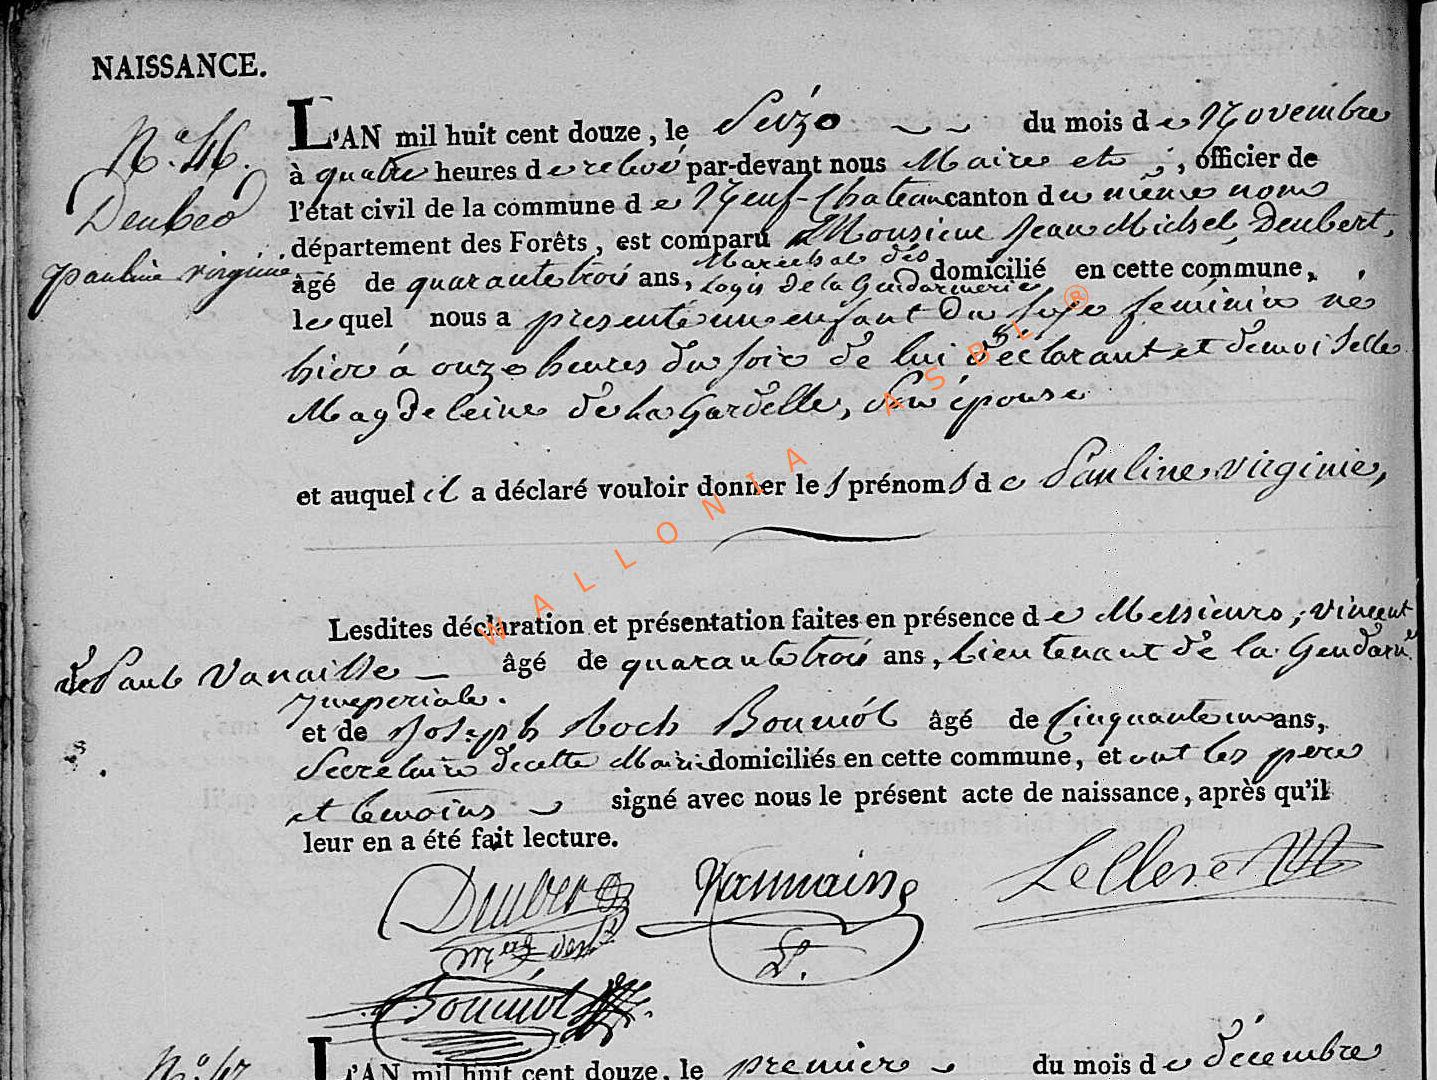 NAISSANCE.
N.o 46.
Deubeo
pauline virginie
L'AN mil huit cent douze, le Seize du mois de Novembre
à quatre heures de relevé par-devant nous Maire et officier de
l'état civil de la commune de Neuf-Chateau canton du même nom
département des Forêts, est comparu Monsieur Jean Michel Deubert,
âgé de quarante trois ans, Marechal des Logis de la Gendarmerie domicilié en cette commune,
lequel nous a presenté un enfant du sexe féminin né
hier à onze heures du soir de lui déclarant et demoiselle
Magdeleine de La Gardelle, son épouse
et auquel il a déclaré vouloir donner les prénoms de Pauline Virginie,
Lesdites déclaration et présentation faites en présence de Messieurs, Vincent
de Paule Vanaisse âgé de quarante trois ans, Lieutenant de la Gendarm.
Imperiale.
et de Joseph Roch Boumôl âgé de Cinquante un ans,
Secretaire de cette Mairie domiciliés en cette commune, et ont les pere
et temoins signé avec nous le présent acte de naissance, après qu'il
leur en a été fait lecture.
Deuber
Boumol
N.o 47
L'AN mil huit cent douze, le premier du mois de décembre
WALLONIA ASBL ®